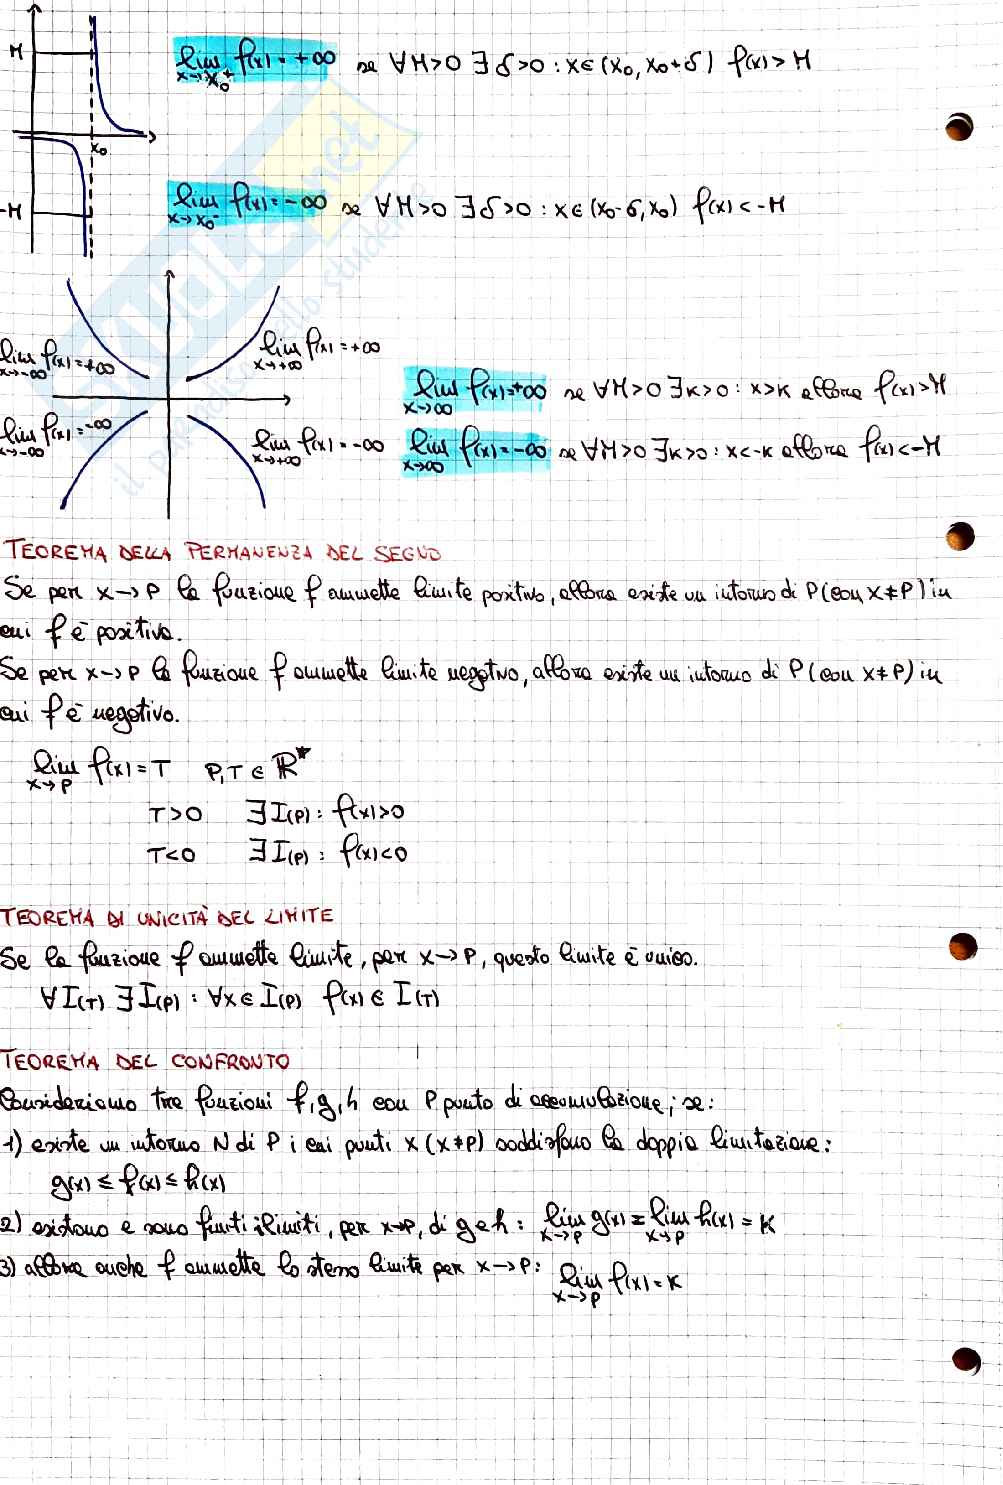 M
lim f(x) = +∞ se ∀M>0 ∃δ>0 : x∈(x₀, x₀+δ) f(x)>M
x→x₀⁺
x₀
-M
lim f(x) = -∞ se ∀M>0 ∃δ>0 : x∈(x₀-δ, x₀) f(x)<-M
x→x₀⁻
lim f(x)=+∞
x→-∞
lim f(x)=+∞
x→+∞
lim f(x)=+∞ se ∀M>0 ∃K>0 : x>K allora f(x)>M
x→∞
lim f(x)=-∞
x→-∞
lim f(x)=-∞
x→+∞
lim f(x)=-∞ se ∀M>0 ∃K>0 : x<-K allora f(x)<-M
x→∞
TEOREMA DELLA PERMANENZA DEL SEGNO
Se per x→P la funzione f ammette limite positivo, allora esiste un intorno di P (con x≠P) in
cui f è positiva.
Se per x→P la funzione f ammette limite negativo, allora esiste un intorno di P (con x≠P) in
cui f è negativo.
lim f(x) = T P,T ∈ ℝ*
x→P
T>0 ∃I(P) : f(x)>0
T<0 ∃I(P) : f(x)<0
TEOREMA DI UNICITÀ DEL LIMITE
Se la funzione f ammette limite, per x→P, questo limite è unico.
∀I(T) ∃I(P) : ∀x∈I(P) f(x)∈I(T)
TEOREMA DEL CONFRONTO
Consideriamo tre funzioni f,g,h con P punto di accumulazione; se:
1) esiste un intorno N di P i cui punti x (x≠P) soddisfano la doppia limitazione:
g(x) ≤ f(x) ≤ h(x)
2) esistono e sono finiti i limiti, per x→P, di g e h : lim g(x) = lim h(x) = K
x→P x→P
3) allora anche f ammette lo stesso limite per x→P: lim f(x) = K
x→P